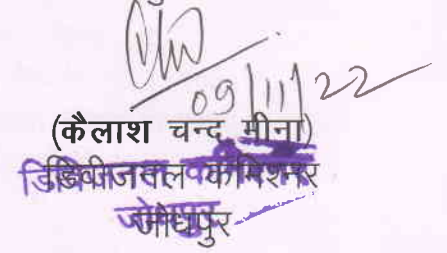 09/11/22
(कैलाश चन्द मीना)
डिवीजनल कमिश्नर
जोधपुर